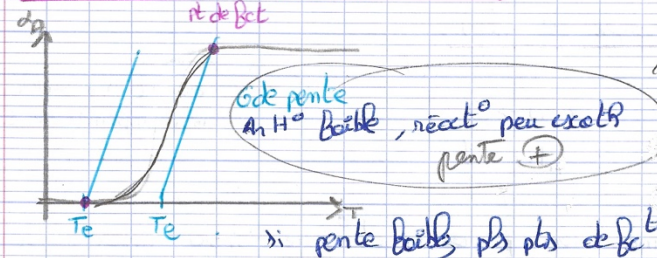 pt de fct
α
Gde pente
ΔrH° faible, réact° peu exoth
pente ⊕
Te Te T
si pente faible, pls pts de fct